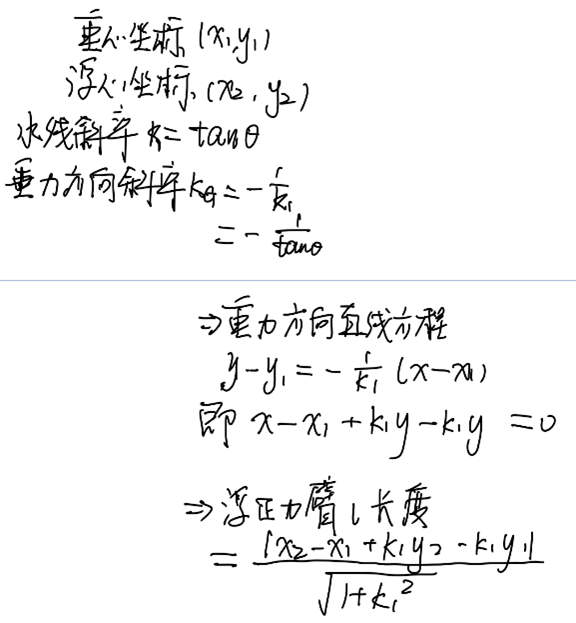 重心坐标 (x₁,y₁)
浮心坐标 (x₂, y₂)
水线斜率 k = tanθ
重力方向斜率 k_G = -1/k₁
= -1/tanθ
⇒重力方向直线方程
y-y₁ = -1/k₁ (x-x₁)
即 x-x₁+k₁y-k₁y =0
⇒浮正力臂 l 长度
= |x₂-x₁+k₁y₂-k₁y₁|/√(1+k₁²)